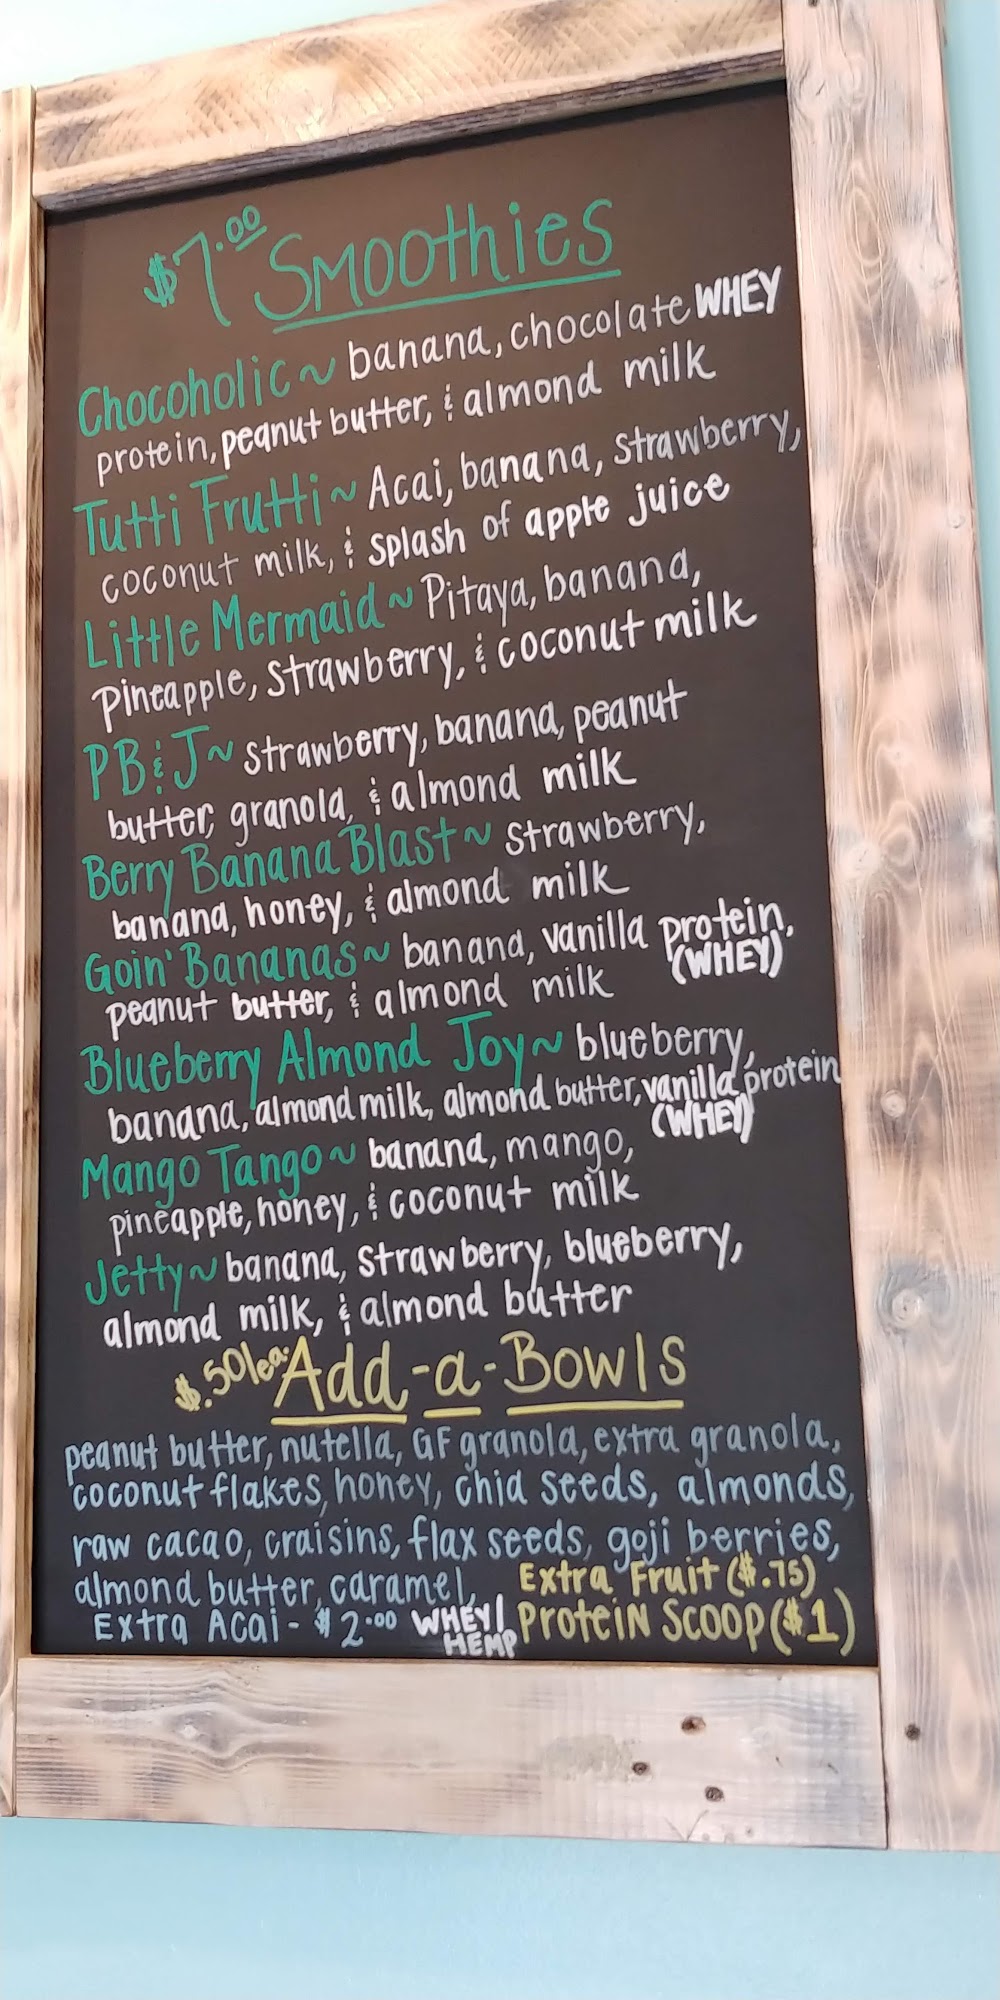 $7.00 Smoothies
Chocoholic ~ banana, chocolate WHEY
protein, peanut butter, & almond milk
Tutti Frutti ~ Acai, banana, strawberry,
coconut milk, & splash of apple juice
Little Mermaid ~ Pitaya, banana,
Pineapple, strawberry, & coconut milk
PB&J ~ strawberry, banana, peanut
butter, granola, & almond milk
Berry Banana Blast ~ strawberry,
banana, honey, & almond milk
Goin' Bananas ~ banana, vanilla protein,
(WHEY)
peanut butter, & almond milk
Blueberry Almond Joy ~ blueberry,
banana, almond milk, almond butter, vanilla protein
(WHEY)
Mango Tango ~ banana, mango,
pineapple, honey, & coconut milk
Jetty ~ banana, strawberry, blueberry,
almond milk, & almond butter
$.50/ea. Add-a-Bowls
peanut butter, nutella, GF granola, extra granola,
coconut flakes, honey, chia seeds, almonds,
raw cacao, craisins, flax seeds, goji berries,
almond butter, caramel, Extra Fruit ($.75)
Extra Acai - $2.00 WHEY/HEMP Protein Scoop ($1)